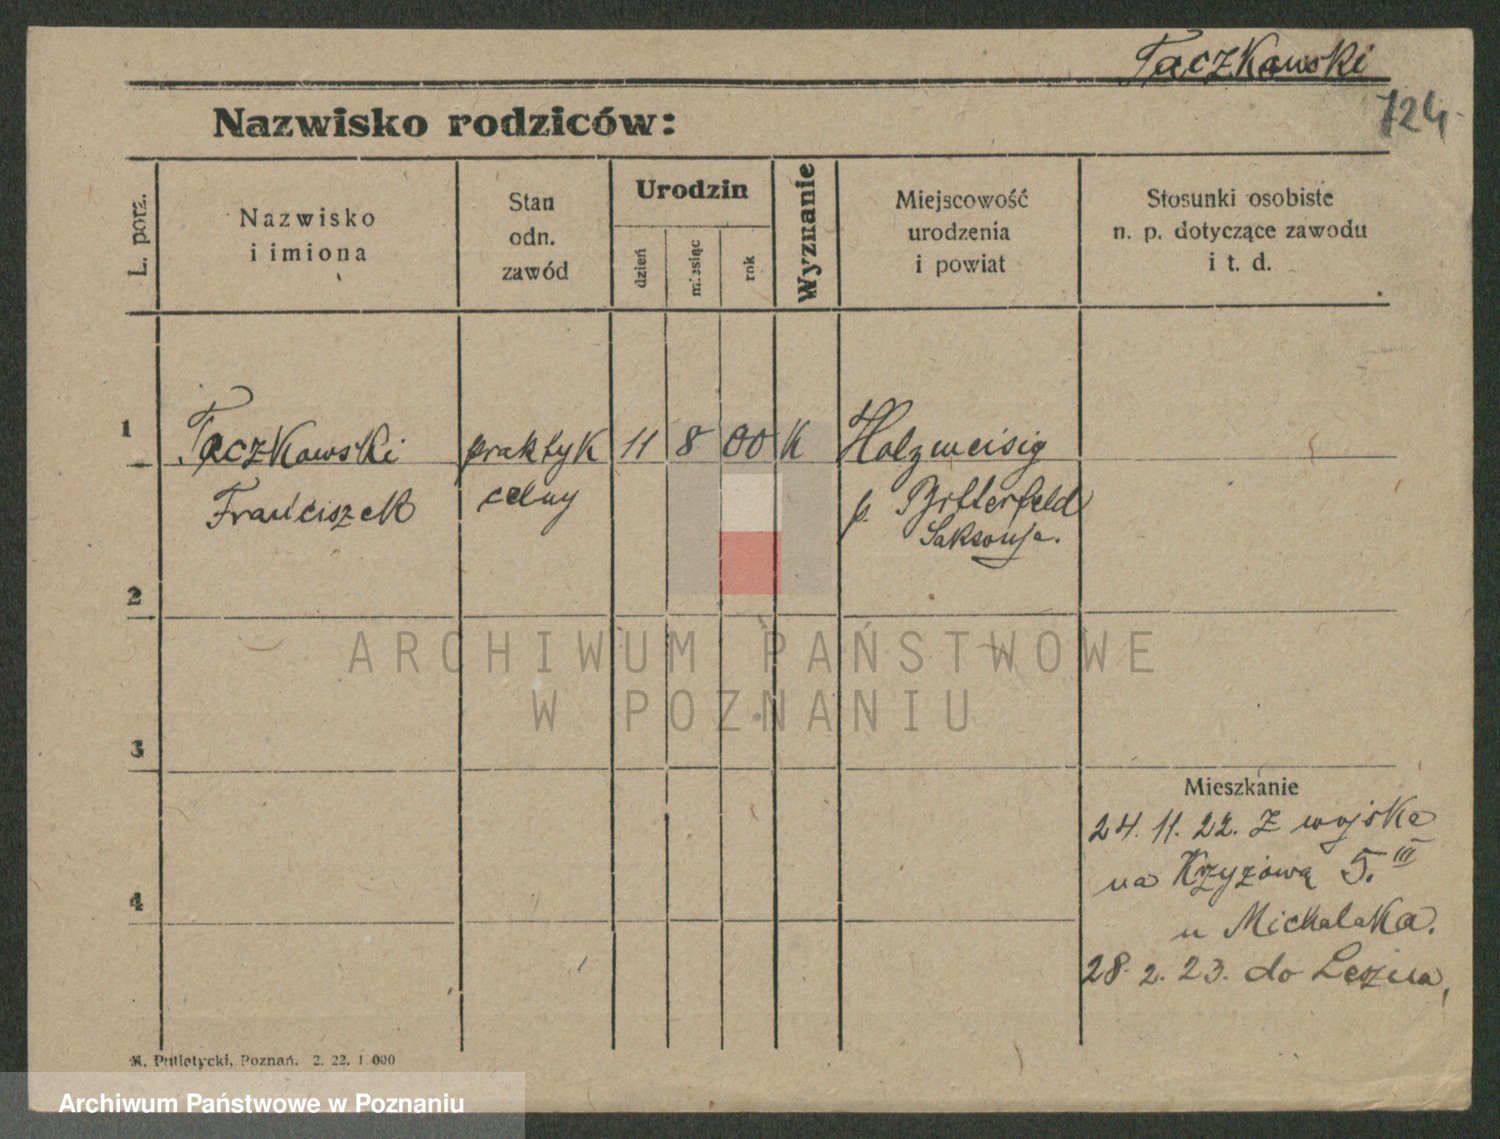 Taczkowski
724
Nazwisko rodziców:
L. porz.
Nazwisko
i imiona
Stan
odn.
zawód
Urodzin
dzień
miesiąc
rok
Wyznanie
Miejscowość
urodzenia
i powiat
Stosunki osobiste
n. p. dotyczące zawodu
i t. d.
1
Taczkowski praktyk 11 8 00 K Holzweisig
Franciszek celny p. Bitterfeld
Saksonja.
2
ARCHIWUM PAŃSTWOWE
W POZNANIU
3
Mieszkanie
24. 11. 22. Z wojska
na Krzyżową 5. III
u Michalaka.
28. 2. 23. do Leszna,
4
M. Putiatycki, Poznań. 2. 22. 1 000
Archiwum Państwowe w Poznaniu